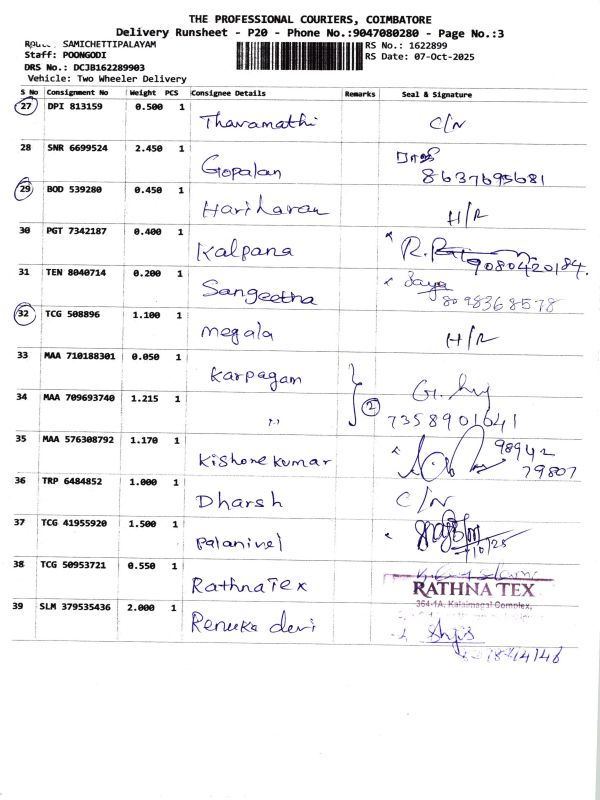 THE PROFESSIONAL COURIERS, COIMBATORE
Delivery Runsheet - P20 - Phone No.:9047080280 - Page No.:3
SAMICHETTIPALAYAM
RS No.: 1622899
Staff: POONGODI
RS Date: 07-Oct-2025
DRS No.: DCJB162289903
Vehicle: Two Wheeler Delivery
S No Consignment No Weight PCS Consignee Details Remarks Seal & Signature
27 DPI 813159 0.500 1 Tharamathi C/N
28 SNR 6699524 2.450 1 Gopalan 8637695681
29 BOD 539280 0.450 1 Hariharan H/R
30 PGT 7342187 0.400 1 Kalpana 9080420184.
31 TEN 8040714 0.200 1 Sangeetha Jaya 8098368578
32 TCG 508896 1.100 1 megala H/R
33 MAA 710188301 0.050 1 Karpagam
34 MAA 709693740 1.215 1 ,, 2 7358901041
35 MAA 576308792 1.170 1 Kishorekumar 98942
79807
36 TRP 6484852 1.000 1 Dharsh C/N
37 TCG 41955920 1.500 1 Palanivel
38 TCG 50953721 0.550 1 RathnaTex
RATHNA TEX
364-1A, Kalaimagal Complex,
39 SLM 379535436 2.000 1 Renuka devi